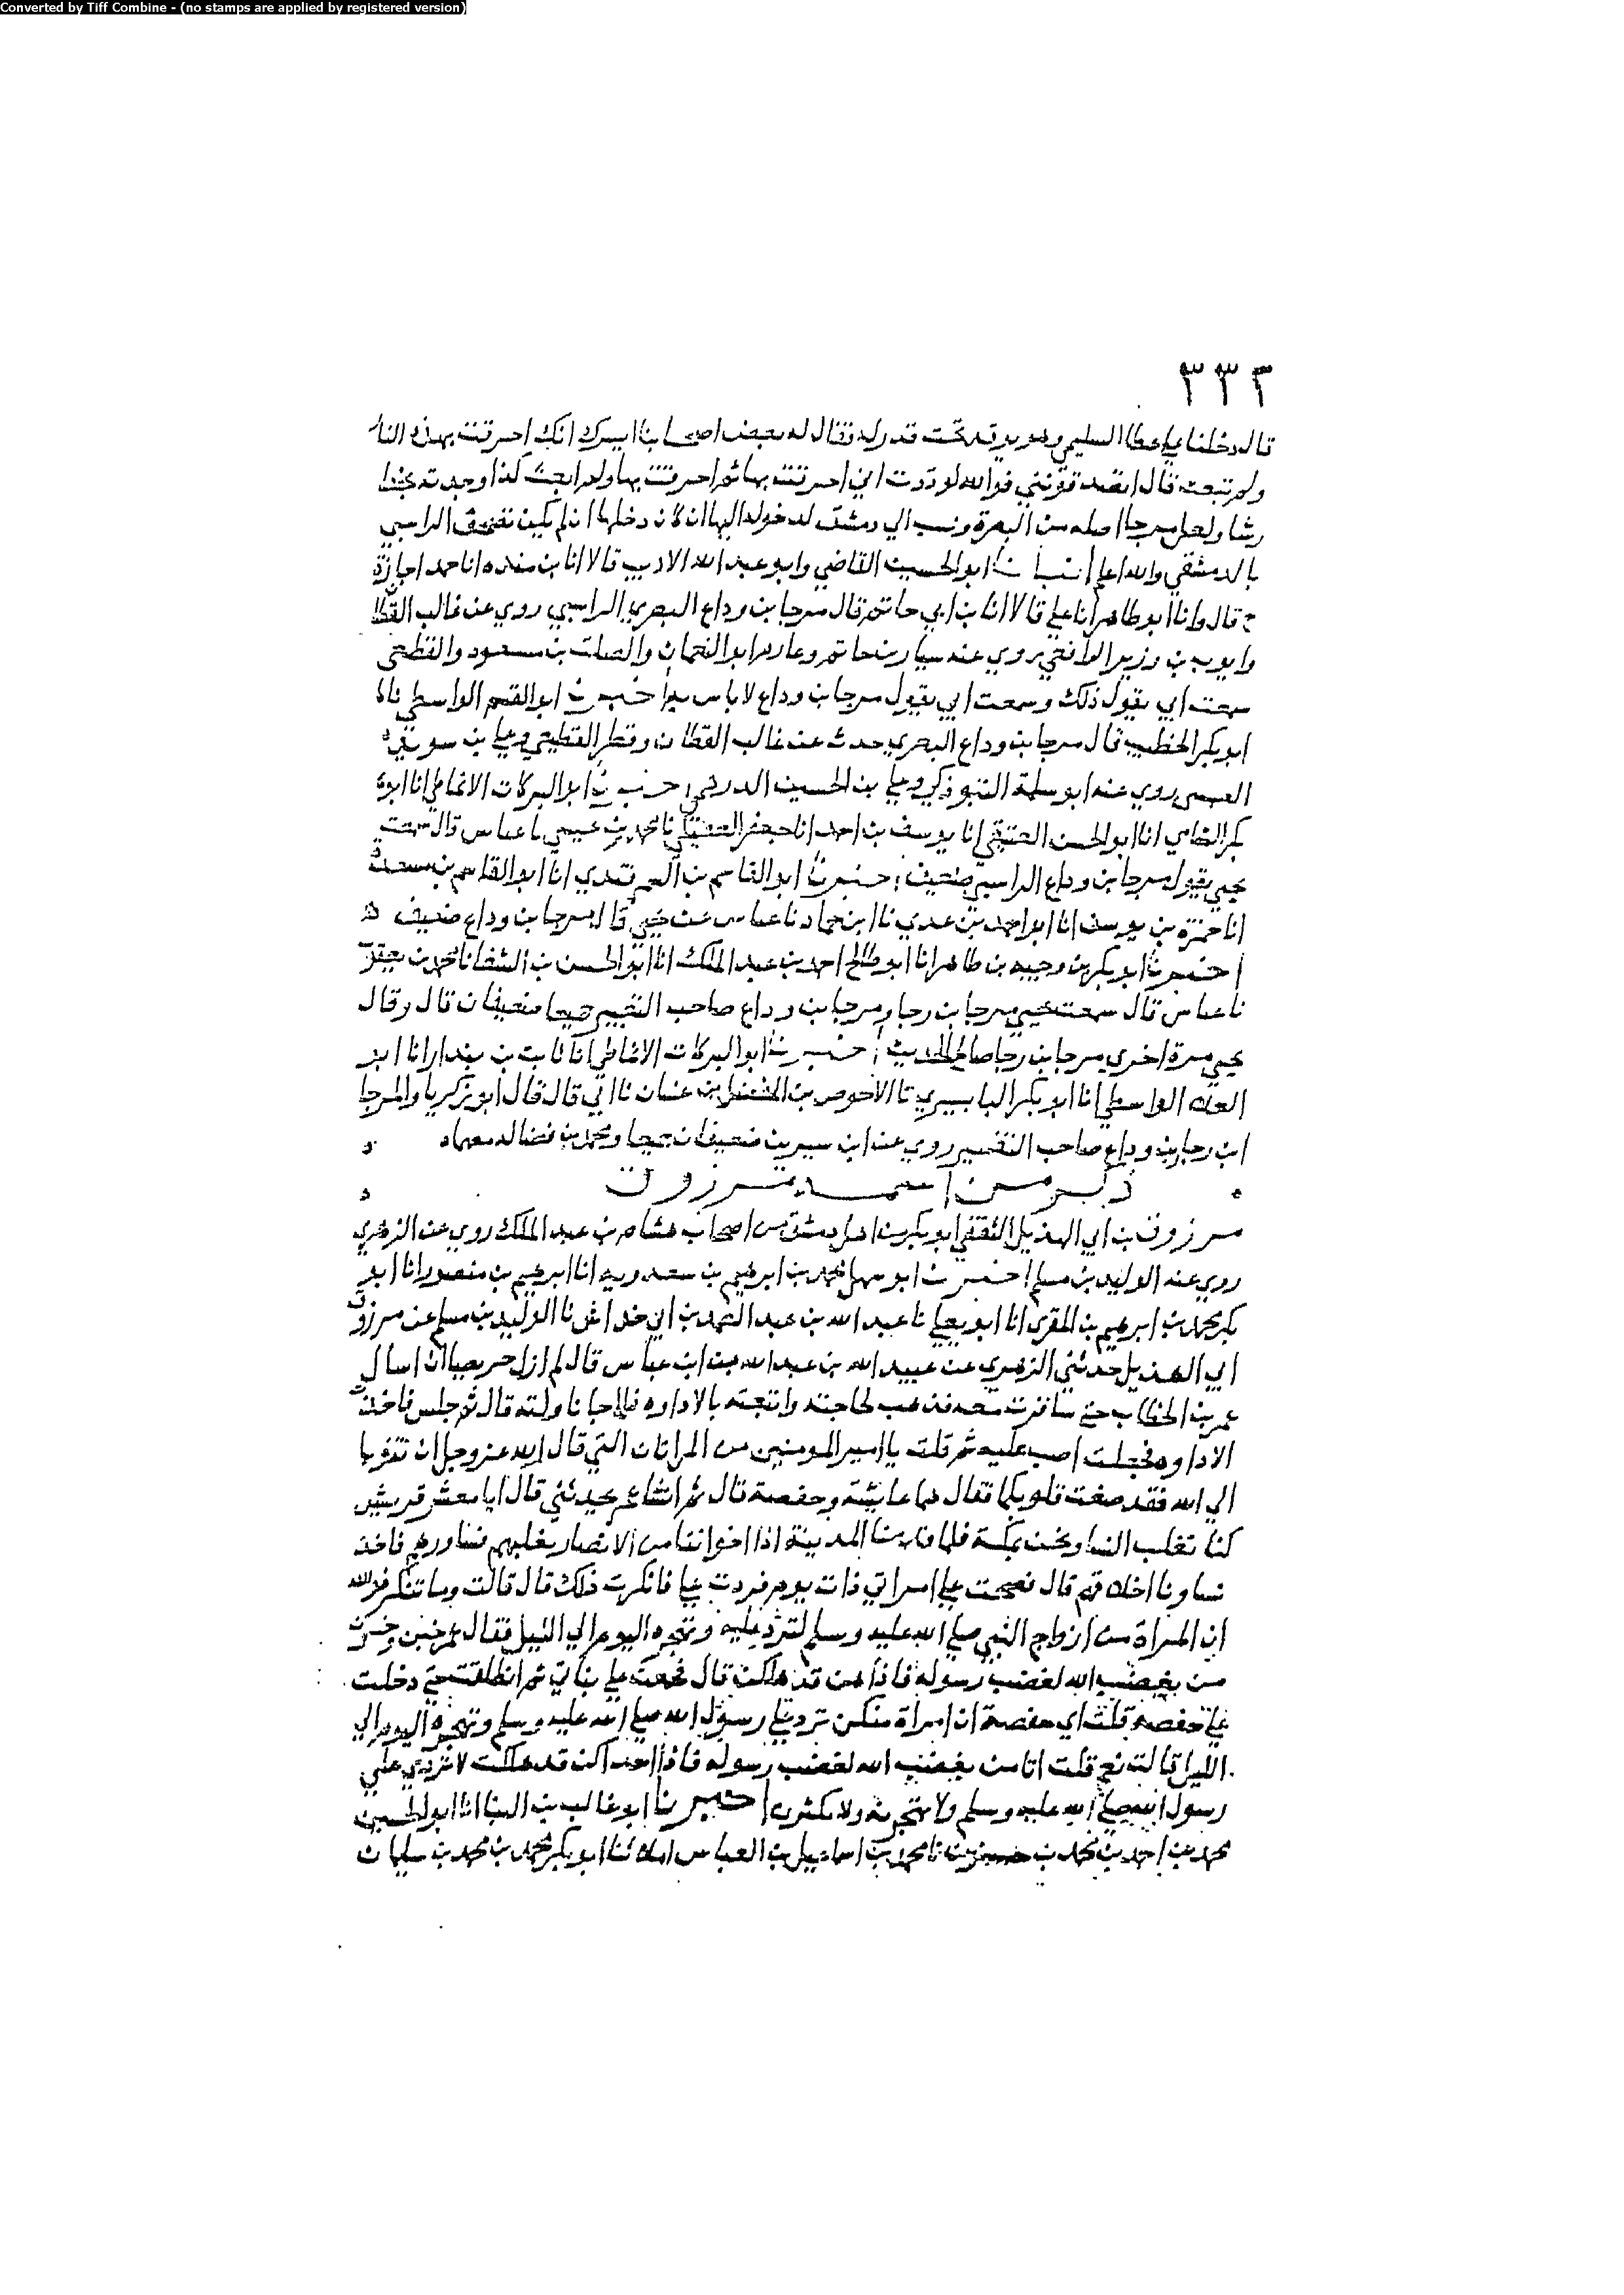 Converted by Tiff Combine - (no stamps are applied by registered version)
٣٣٢
قال دخلنا علي عطا السليمي وهو يوقد تحت قدر له فقال له بعض اصحابنا ايسرك انك احرقت بهذه النار
ولم تبعث قال فوالله لوددت اني احرقت بها ثم احرقت بها ولم ابعث كذا وجدته بخط
رشا ولعل مرجا اصله من البصرة ونسب الي دمشق لدخوله اليها ان كان دخلها ان لم يكن تصحف الراسبي
بالدمشقي والله اعلم انبانا ابو الحسين القاضي وابو عبد الله الاديب قالا انا بن منده انا حمد اجازة
ح قال وانا ابو طاهر انا علي قالا انا بن ابي حاتم قال مرجا بن وداع البصري الراسبي روي عن غالب القطا
وايوب بن وزير روي عنه سيار بن حاتم وعارم ابو النعمان والصلت بن مسعود والقطعي
سمعت ابي يقول ذلك وسمعت ابي يقول مرجا بن وداع لا باس به اخبرنا ابو القسم الواسطي نا
ابو بكر الخطيب قال مرجا بن وداع البصري حدث عن غالب القطان وقطر القطيعي وعلي بن
روي عنه ابو سلمة التبوذكي وعلي بن الحسين الدرهمي اخبرنا ابو البركات الانماطي انا ابو
بكر الشامي انا ابو الحسن العتيقي انا يوسف بن احمد انا جعفر العقيلي نا محمد بن عيسي نا عباس قال سمعت
يحيي يقول مرجا بن وداع الراسبي ضعيف اخبرنا ابو القاسم بن السمرقندي انا ابو القاسم بن مسعدة
انا حمزة بن يوسف انا ابو احمد بن عدي نا ابن حماد نا عباس عن يحيي قال مرجا بن وداع ضعيف ه
اخبرنا ابو بكر بن وجيه بن طاهر انا ابو صالح احمد بن عبد الملك انا ابو الحسن بن السقا نا محمد بن يعقوب
نا عباس قال سمعت يحيي مرجا بن رجا ومرجا بن وداع صاحب التفسير جميعا ضعيفان قال وقال
يحيي مرة اخري مرجا بن رجا صالح الحديث اخبرنا ابو البركات الانماطي انا ثابت بن بندار انا ابو
العلا الواسطي انا ابو بكر البابسيري نا الاحوص بن المفضل بن غسان نا ابي قال قال ابو زكريا والمرجا
ابن رجا بن وداع صاحب التفسير روي عنه ابن سيرين ضعيفان جميعا ومحمد بن فضاله معهما
ذكر من اسمه مرزوق
مرزوق بن ابي الهذيل الثقفي ابو بكر من اهل دمشق من اصحاب هشام بن عبد الملك روي عن الزهري
روي عنه الوليد بن مسلم اخبرنا ابو سهل محمد بن ابرهيم بن سعدويه انا ابرهيم بن منصور انا ابو
بكر محمد بن ابرهيم بن المقري انا ابو يعلي نا عبد الله بن عبد الصمد بن ابي خداش نا الوليد بن مسلم عن مرزوق
ابي الهذيل حدثني الزهري عن عبيد الله بن عبد الله عن ابن عباس قال لم ازل حريصا ان اسال
عمر بن الخطاب حتي سافرت معه فذهب لحاجته واتبعته بالاداوه فلما جا ناولته قال ثم جلس فاخذت
الاداوه فجعلت اصب عليه ثم قلت يا امير المومنين من المراتان التي قال الله عز وجل ان تتوبا
الي الله فقد صغت قلوبكما فقال هما عايشة وحفصة قال ثم انشا عمر يحدثني قال ايا معشر قريش
كنا نغلب النسا ونحن بمكة فلما قدمنا المدينة اذا اخواننا من الانصار يغلبهم نساوهم فاخذ
نساونا اخلاقهم قال فصحت علي امراتي ذات يوم فردت عليا فانكرت ذلك قال قالت وما تنكر فوالله
ان المراة من ازواج النبي صلي الله عليه وسلم لترد عليه وتهجره اليوم الي الليل فقال عمر خبن وخسرت
من يغضب الله لغضب رسوله فاذا هن قد هلكن قال فجمعت علي ثيابي ثم انطلقت حتي دخلت
علي حفصة قلت اي حفصة ان امراة منكن ترد علي رسول الله صلي الله عليه وسلم وتهجره اليوم الي
الليل قالت نعم قلت اتامن يغضب الله لغضب رسوله فاذا احداكن قد هلكت لا تردي علي
رسول الله صلي الله عليه وسلم ولا تهجريه ولا تكثري اخبرنا ابو غالب بن البنا انا ابو الحسين
محمد بن احمد بن محمد بن حسنون نا محمد بن اسماعيل بن العباس املا نا ابو بكر محمد بن محمد بن سليمان